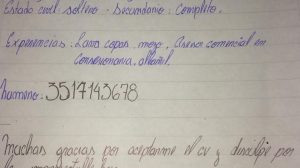 Estado civil: soltero - Secundario: Completo.
Experiencias: Lava copas, mozo, Asesor comercial en
concesionaria, albañil.
Numero: 3517143678
Muchas gracias por aceptarme el cv y disculpe por
la